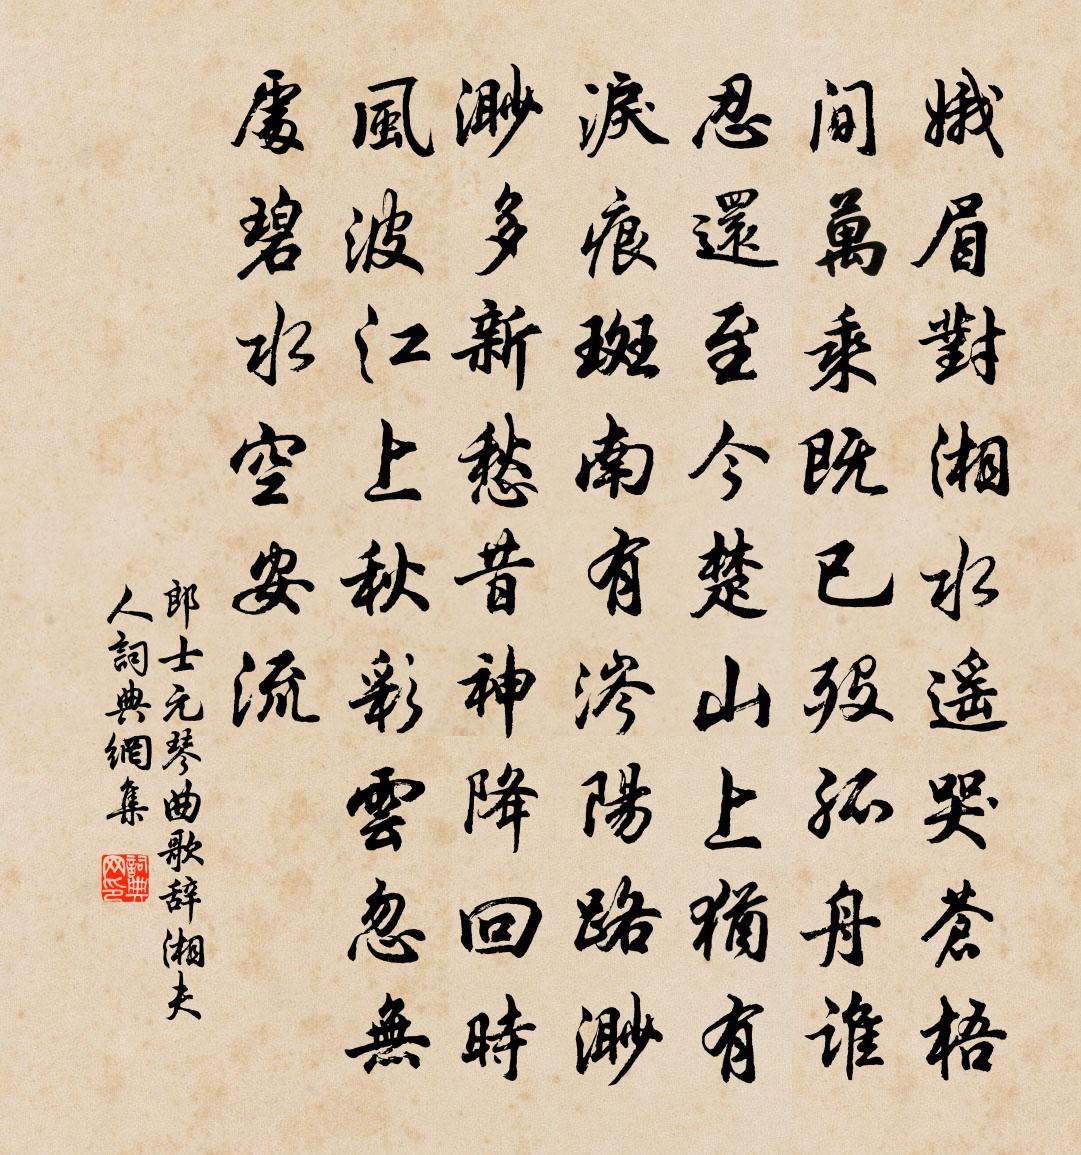 娥眉對湘水遥哭蒼梧
間萬乘既已歿孤舟誰
忍還至今楚山上猶有
淚痕斑南有涔陽路渺
渺多新愁昔神降回時
風波江上秋彩雲忽無
處碧水空安流
郎士元琴曲歌辞湘夫
人詞典網集
詞典
网印